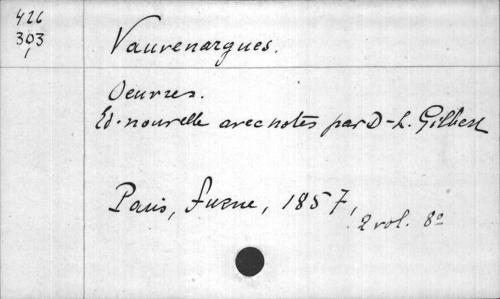 426
303
1
Vauvenargues.
Oeuvres.
Ed. nouvelle avec notes par D-L. Gilbert
Paris, Furne, 1857,
2 vol. 8°